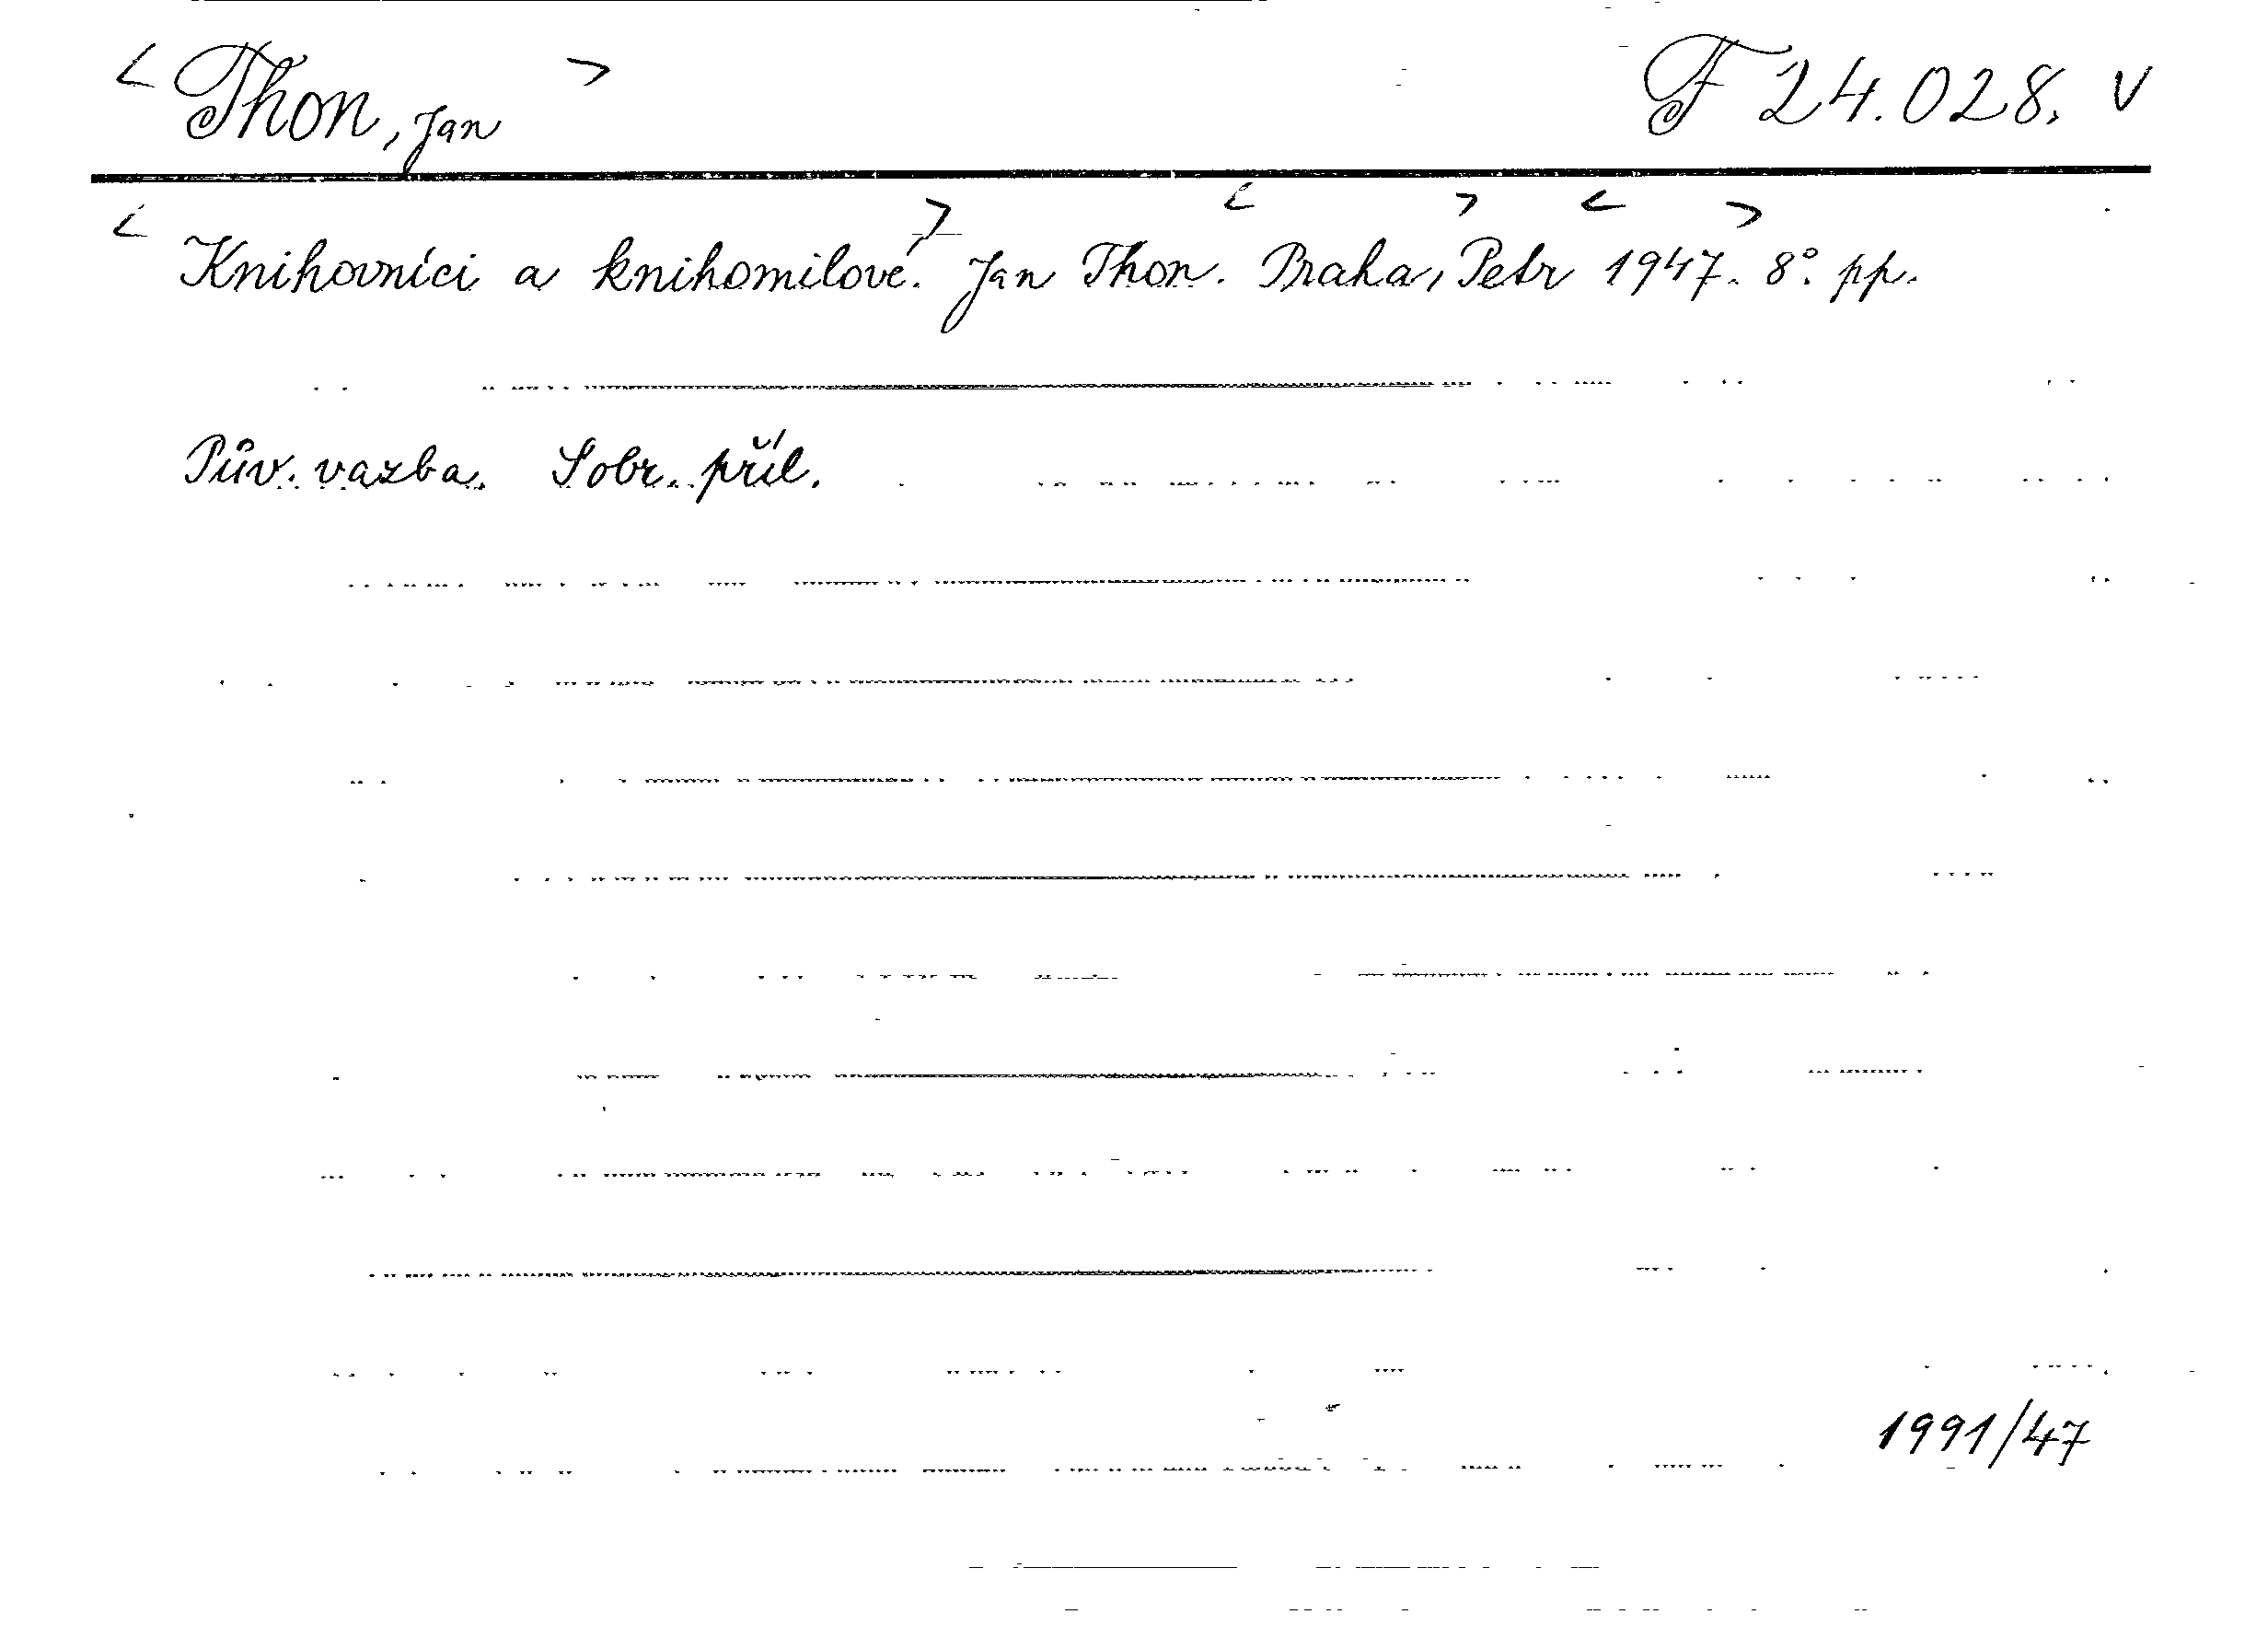 < Thon, Jan > F 24.028. v
< Knihovníci a knihomilové. > Jan Thon. < Praha, > Petr < 1947. > 8°. pp.
Pův. vazba. Sobr. příl.
1991/47